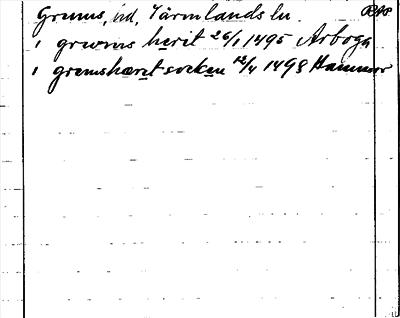 Grums, hd, Värmlands ln. RAP
i grwms herit 26/1 1495 Arboga
i gremshæret socken 12/4 1498 Hammar